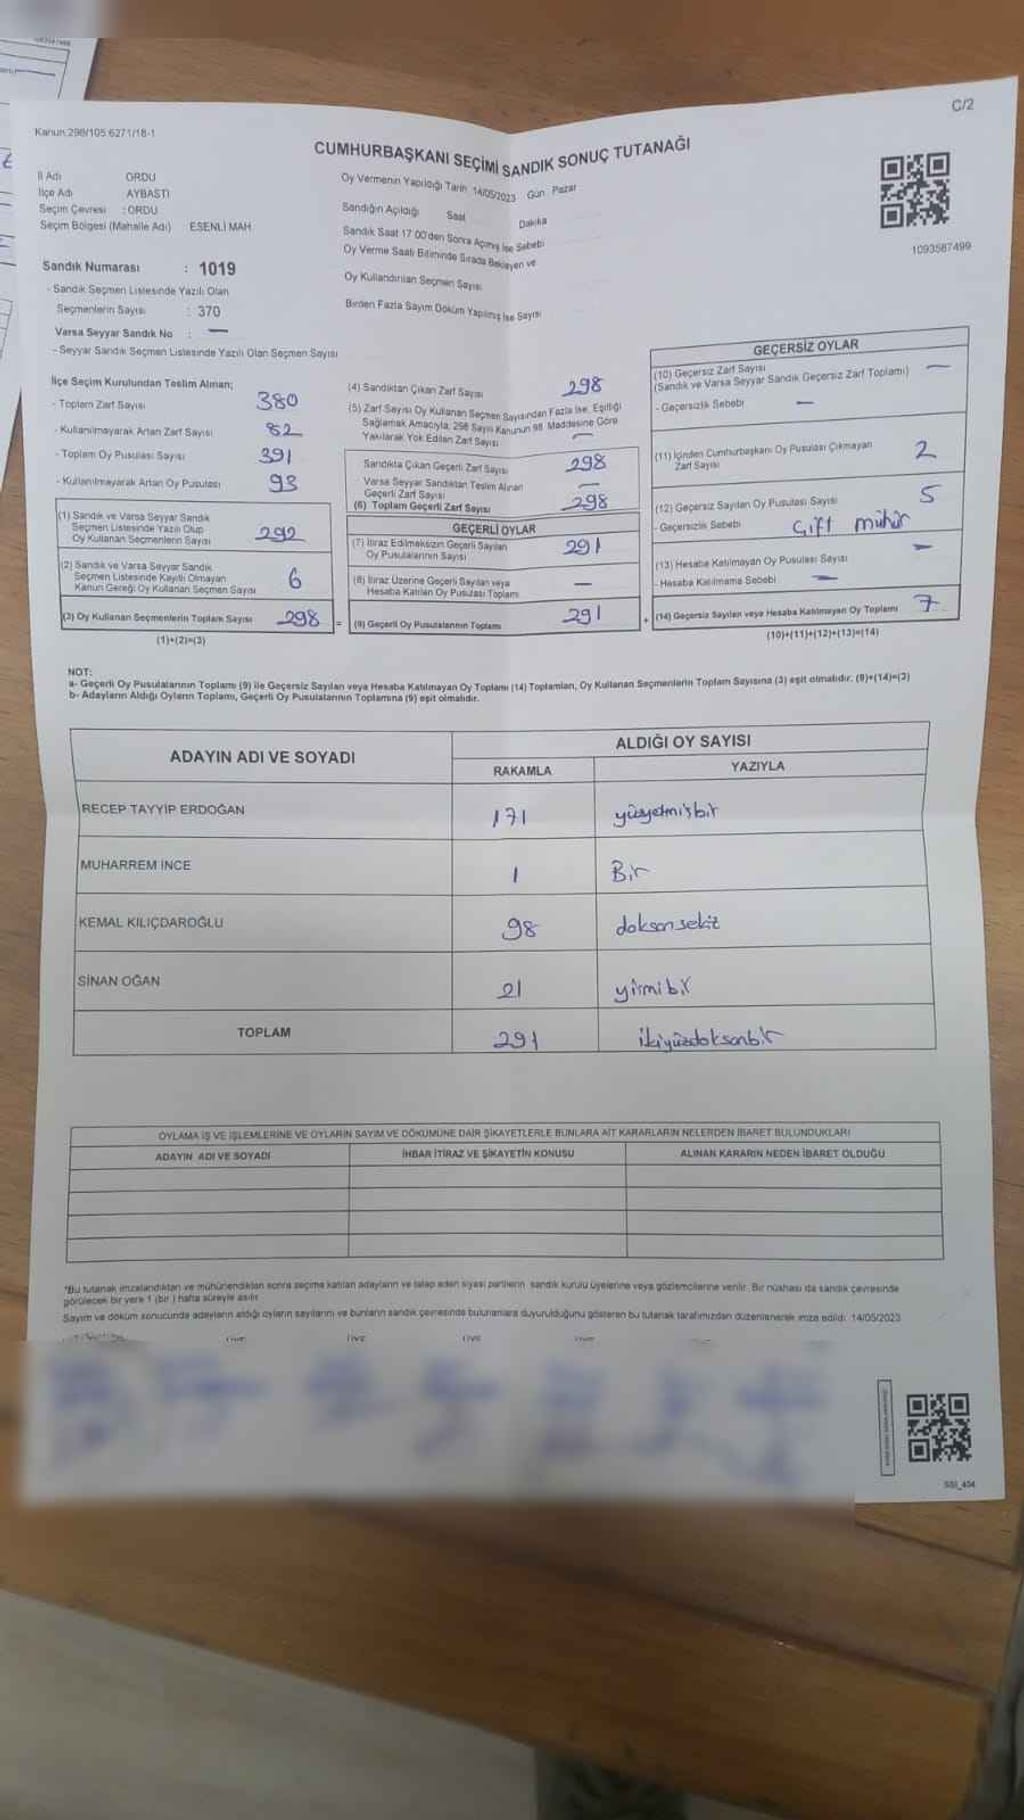 C/2
Kanun.298/105.6271/18-1
CUMHURBAŞKANI SEÇİMİ SANDIK SONUÇ TUTANAĞI
İl Adı ORDU
İlçe Adı AYBASTI
Seçim Çevresi : ORDU
Seçim Bölgesi (Mahalle Adı) ESENLİ MAH.
Oy Vermenin Yapıldığı Tarih 14/05/2023 Gün Pazar
Sandığın Açıldığı Saat Dakika
Sandık Saat 17.00'den Sonra Açılmış İse Sebebi
Oy Verme Saati Bitiminde Sırada Bekleyen ve
Oy Kullandırılan Seçmen Sayısı
Birden Fazla Sayım Döküm Yapılmış İse Sayısı
1093587499
Sandık Numarası : 1019
- Sandık Seçmen Listesinde Yazılı Olan
Seçmenlerin Sayısı : 370
Varsa Seyyar Sandık No : —
- Seyyar Sandık Seçmen Listesinde Yazılı Olan Seçmen Sayısı
İlçe Seçim Kurulundan Teslim Alınan;
- Toplam Zarf Sayısı 380
- Kullanılmayarak Artan Zarf Sayısı 82
- Toplam Oy Pusulası Sayısı 391
- Kullanılmayarak Artan Oy Pusulası 93
(1) Sandık ve Varsa Seyyar Sandık
Seçmen Listesinde Yazılı Olup
Oy Kullanan Seçmenlerin Sayısı 292
(2) Sandık ve Varsa Seyyar Sandık
Seçmen Listesinde Kayıtlı Olmayan
Kanun Gereği Oy Kullanan Seçmen Sayısı 6
(3) Oy Kullanan Seçmenlerin Toplam Sayısı 298 =
(1)+(2)=(3)
(4) Sandıktan Çıkan Zarf Sayısı 298
(5) Zarf Sayısı Oy Kullanan Seçmen Sayısından Fazla İse, Eşitliği
Sağlamak Amacıyla, 298 Sayılı Kanunun 98. Maddesine Göre
Yakılarak Yok Edilen Zarf Sayısı —
Sandıkta Çıkan Geçerli Zarf Sayısı 298
Varsa Seyyar Sandıktan Teslim Alınan
Geçerli Zarf Sayısı —
(6) Toplam Geçerli Zarf Sayısı 298
GEÇERLİ OYLAR
(7) İtiraz Edilmeksizin Geçerli Sayılan
Oy Pusulalarının Sayısı 291
(8) İtiraz Üzerine Geçerli Sayılan veya
Hesaba Katılan Oy Pusulası Toplamı —
(9) Geçerli Oy Pusulalarının Toplamı 291 +
GEÇERSİZ OYLAR
(10) Geçersiz Zarf Sayısı
(Sandık ve Varsa Seyyar Sandık Geçersiz Zarf Toplamı) —
- Geçersizlik Sebebi —
(11) İçinden Cumhurbaşkanı Oy Pusulası Çıkmayan
Zarf Sayısı 2
(12) Geçersiz Sayılan Oy Pusulası Sayısı 5
- Geçersizlik Sebebi Çift mühür
(13) Hesaba Katılmayan Oy Pusulası Sayısı —
- Hesaba Katılmama Sebebi —
(14) Geçersiz Sayılan veya Hesaba Katılmayan Oy Toplamı 7
(10)+(11)+(12)+(13)=(14)
NOT:
a- Geçerli Oy Pusulalarının Toplamı (9) ile Geçersiz Sayılan veya Hesaba Katılmayan Oy Toplamı (14) Toplamları, Oy Kullanan Seçmenlerin Toplam Sayısına (3) eşit olmalıdır. (9)+(14)=(3)
b- Adayların Aldığı Oyların Toplamı, Geçerli Oy Pusulalarının Toplamına (9) eşit olmalıdır.
ADAYIN ADI VE SOYADI ALDIĞI OY SAYISI
RAKAMLA YAZIYLA
RECEP TAYYİP ERDOĞAN 171 yüzyetmişbir
MUHARREM İNCE 1 Bir
KEMAL KILIÇDAROĞLU 98 doksansekiz
SİNAN OĞAN 21 yirmibir
TOPLAM 291 ikiyüzdoksanbir
OYLAMA İŞ VE İŞLEMLERİNE VE OYLARIN SAYIM VE DÖKÜMÜNE DAİR ŞİKAYETLERLE BUNLARA AİT KARARLARIN NELERDEN İBARET BULUNDUKLARI
ADAYIN ADI VE SOYADI İHBAR İTİRAZ VE ŞİKAYETİN KONUSU ALINAN KARARIN NEDEN İBARET OLDUĞU
*Bu tutanak imzalandıktan ve mühürlendikten sonra seçime katılan adayların ve talep eden siyasi partilerin sandık kurulu üyelerine veya gözlemcilerine verilir. Bir nüshası da sandık çevresinde
görülecek bir yere 1 (bir) hafta süreyle asılır.
Sayım ve döküm sonucunda adayların aldığı oyların sayılarını ve bunların sandık çevresinde bulunanlara duyurulduğunu gösteren bu tutanak tarafımızdan düzenlenerek imza edildi. 14/05/2023